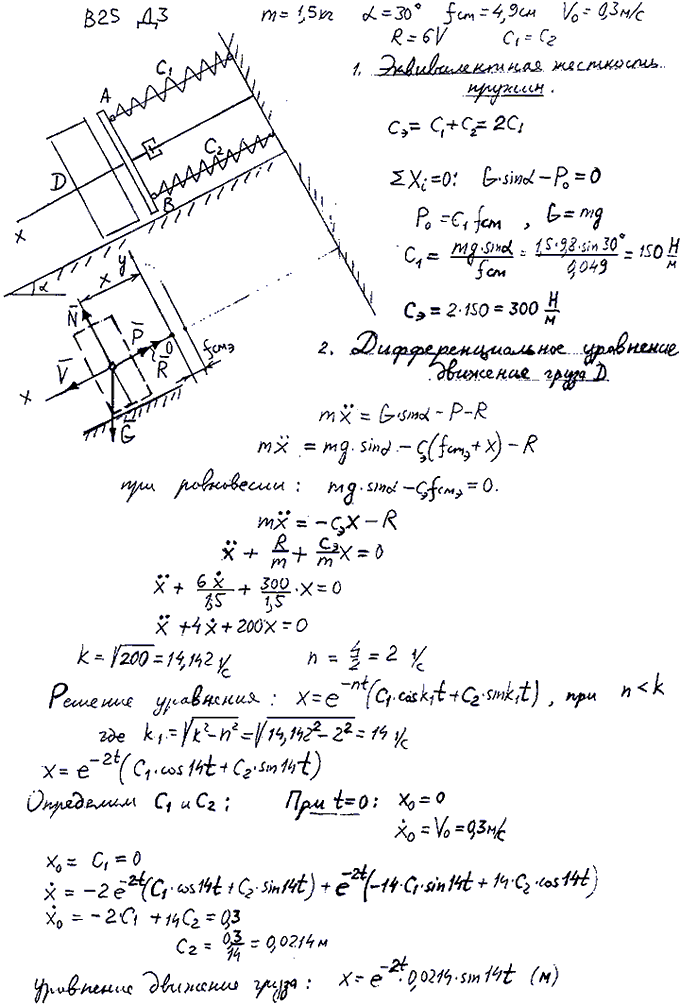 В25 Д3 m=1,5кг α=30° fст=4,9см V₀=0,3м/с
R=6V C₁=C₂
1. Эквивалентная жесткость
пружин.
Cэ = C₁+C₂=2C₁
ΣXᵢ=0: G·sinα−P₀=0
P₀=C₁fст , G=mg
C₁ = mg·sinα/fст = 1,5·9,8·sin30°/0,049 = 150 Н/м
Cэ = 2·150 = 300 Н/м
C₁
A
C₂
D
B
x
α
y
x
N̅
P̅
O
V̅
R̅
fстэ
x
G̅
2. Дифференциальное уровнение
движение груза D
mẍ = G·sinα−P−R
mẍ = mg·sinα−Cэ(fстэ+x)−R
при ровновесии: mg·sinα−Cэfстэ=0.
mẍ = −CэX−R
ẍ + R/m + Cэ/m x = 0
ẍ + 6ẋ/1,5 + 300/1,5·x=0
ẍ +4ẋ+200x=0
k=√200=14,142 1/с n = 4/2 = 2 1/с
Решение уровнения: x=e⁻ⁿᵗ(C₁·cosk₁t+C₂·sink₁t), при n<k
где k₁=√k²−n²=√14,142²−2²=14 1/с
x=e⁻²ᵗ(C₁·cos14t+C₂·sin14t)
Определим C₁ и C₂; При t=0: x₀=0
ẋ₀=V₀=0,3м/с
x₀ = C₁=0
ẋ = −2e⁻²ᵗ(C₁·cos14t+C₂·sin14t)+e⁻²ᵗ(−14·C₁·sin14t+14·C₂·cos14t)
ẋ₀ = −2·C₁ +14C₂ = 0,3
C₂ = 0,3/14 = 0,0214 м
уровнение движение груза: x=e⁻²ᵗ·0,0214·sin14t (м)